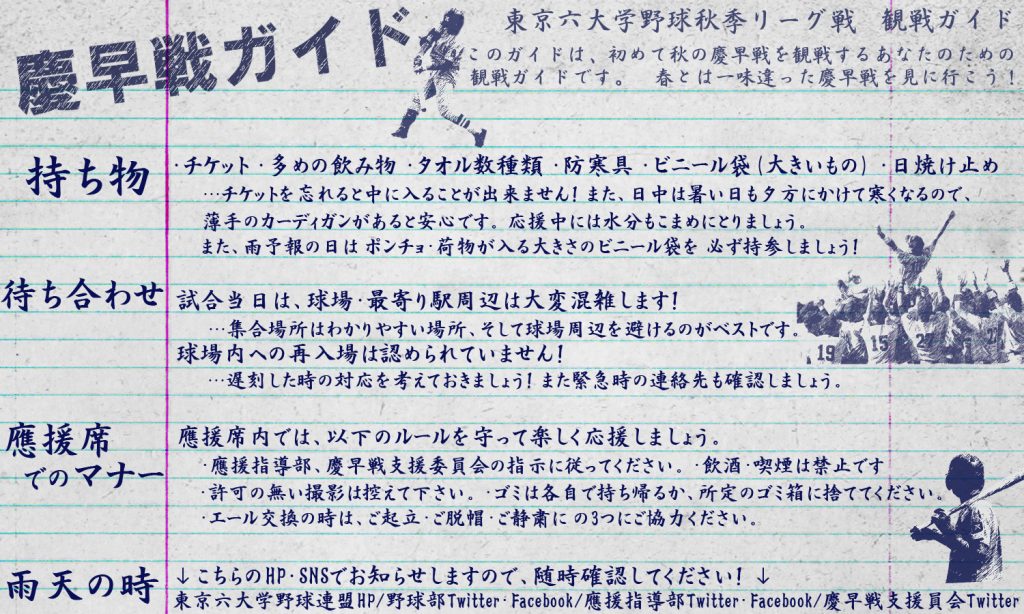 慶早戦ガイド
東京六大学野球秋季リーグ戦　観戦ガイド
このガイドは、初めて秋の慶早戦を観戦するあなたのための
観戦ガイドです。　春とは一味違った慶早戦を見に行こう！
持ち物
・チケット・多めの飲み物・タオル数種類・防寒具・ビニール袋(大きいもの)・日焼け止め
…チケットを忘れると中に入ることが出来ません！また、日中は暑い日も夕方にかけて寒くなるので、
薄手のカーディガンがあると安心です。応援中には水分もこまめにとりましょう。
また、雨予報の日は ポンチョ・荷物が入る大きさのビニール袋を 必ず持参しましょう！
待ち合わせ
試合当日は、球場・最寄り駅周辺は大変混雑します！
…集合場所はわかりやすい場所、そして球場周辺を避けるのがベストです。
球場内への再入場は認められていません！
…遅刻した時の対応を考えておきましょう！また緊急時の連絡先も確認しましょう。
19 15 22
應援席
でのマナー
應援席内では、以下のルールを守って楽しく応援しましょう。
・應援指導部、慶早戦支援委員会の指示に従ってください。・飲酒・喫煙は禁止です
・許可の無い撮影は控えて下さい。・ゴミは各自で持ち帰るか、所定のゴミ箱に捨ててください。
・エール交換の時は、ご起立・ご脱帽・ご静粛に の3つにご協力ください。
雨天の時
↓こちらのHP・SNSでお知らせしますので、随時確認してください！↓
東京六大学野球連盟HP/野球部Twitter・Facebook/應援指導部Twitter・Facebook/慶早戦支援員会Twitter